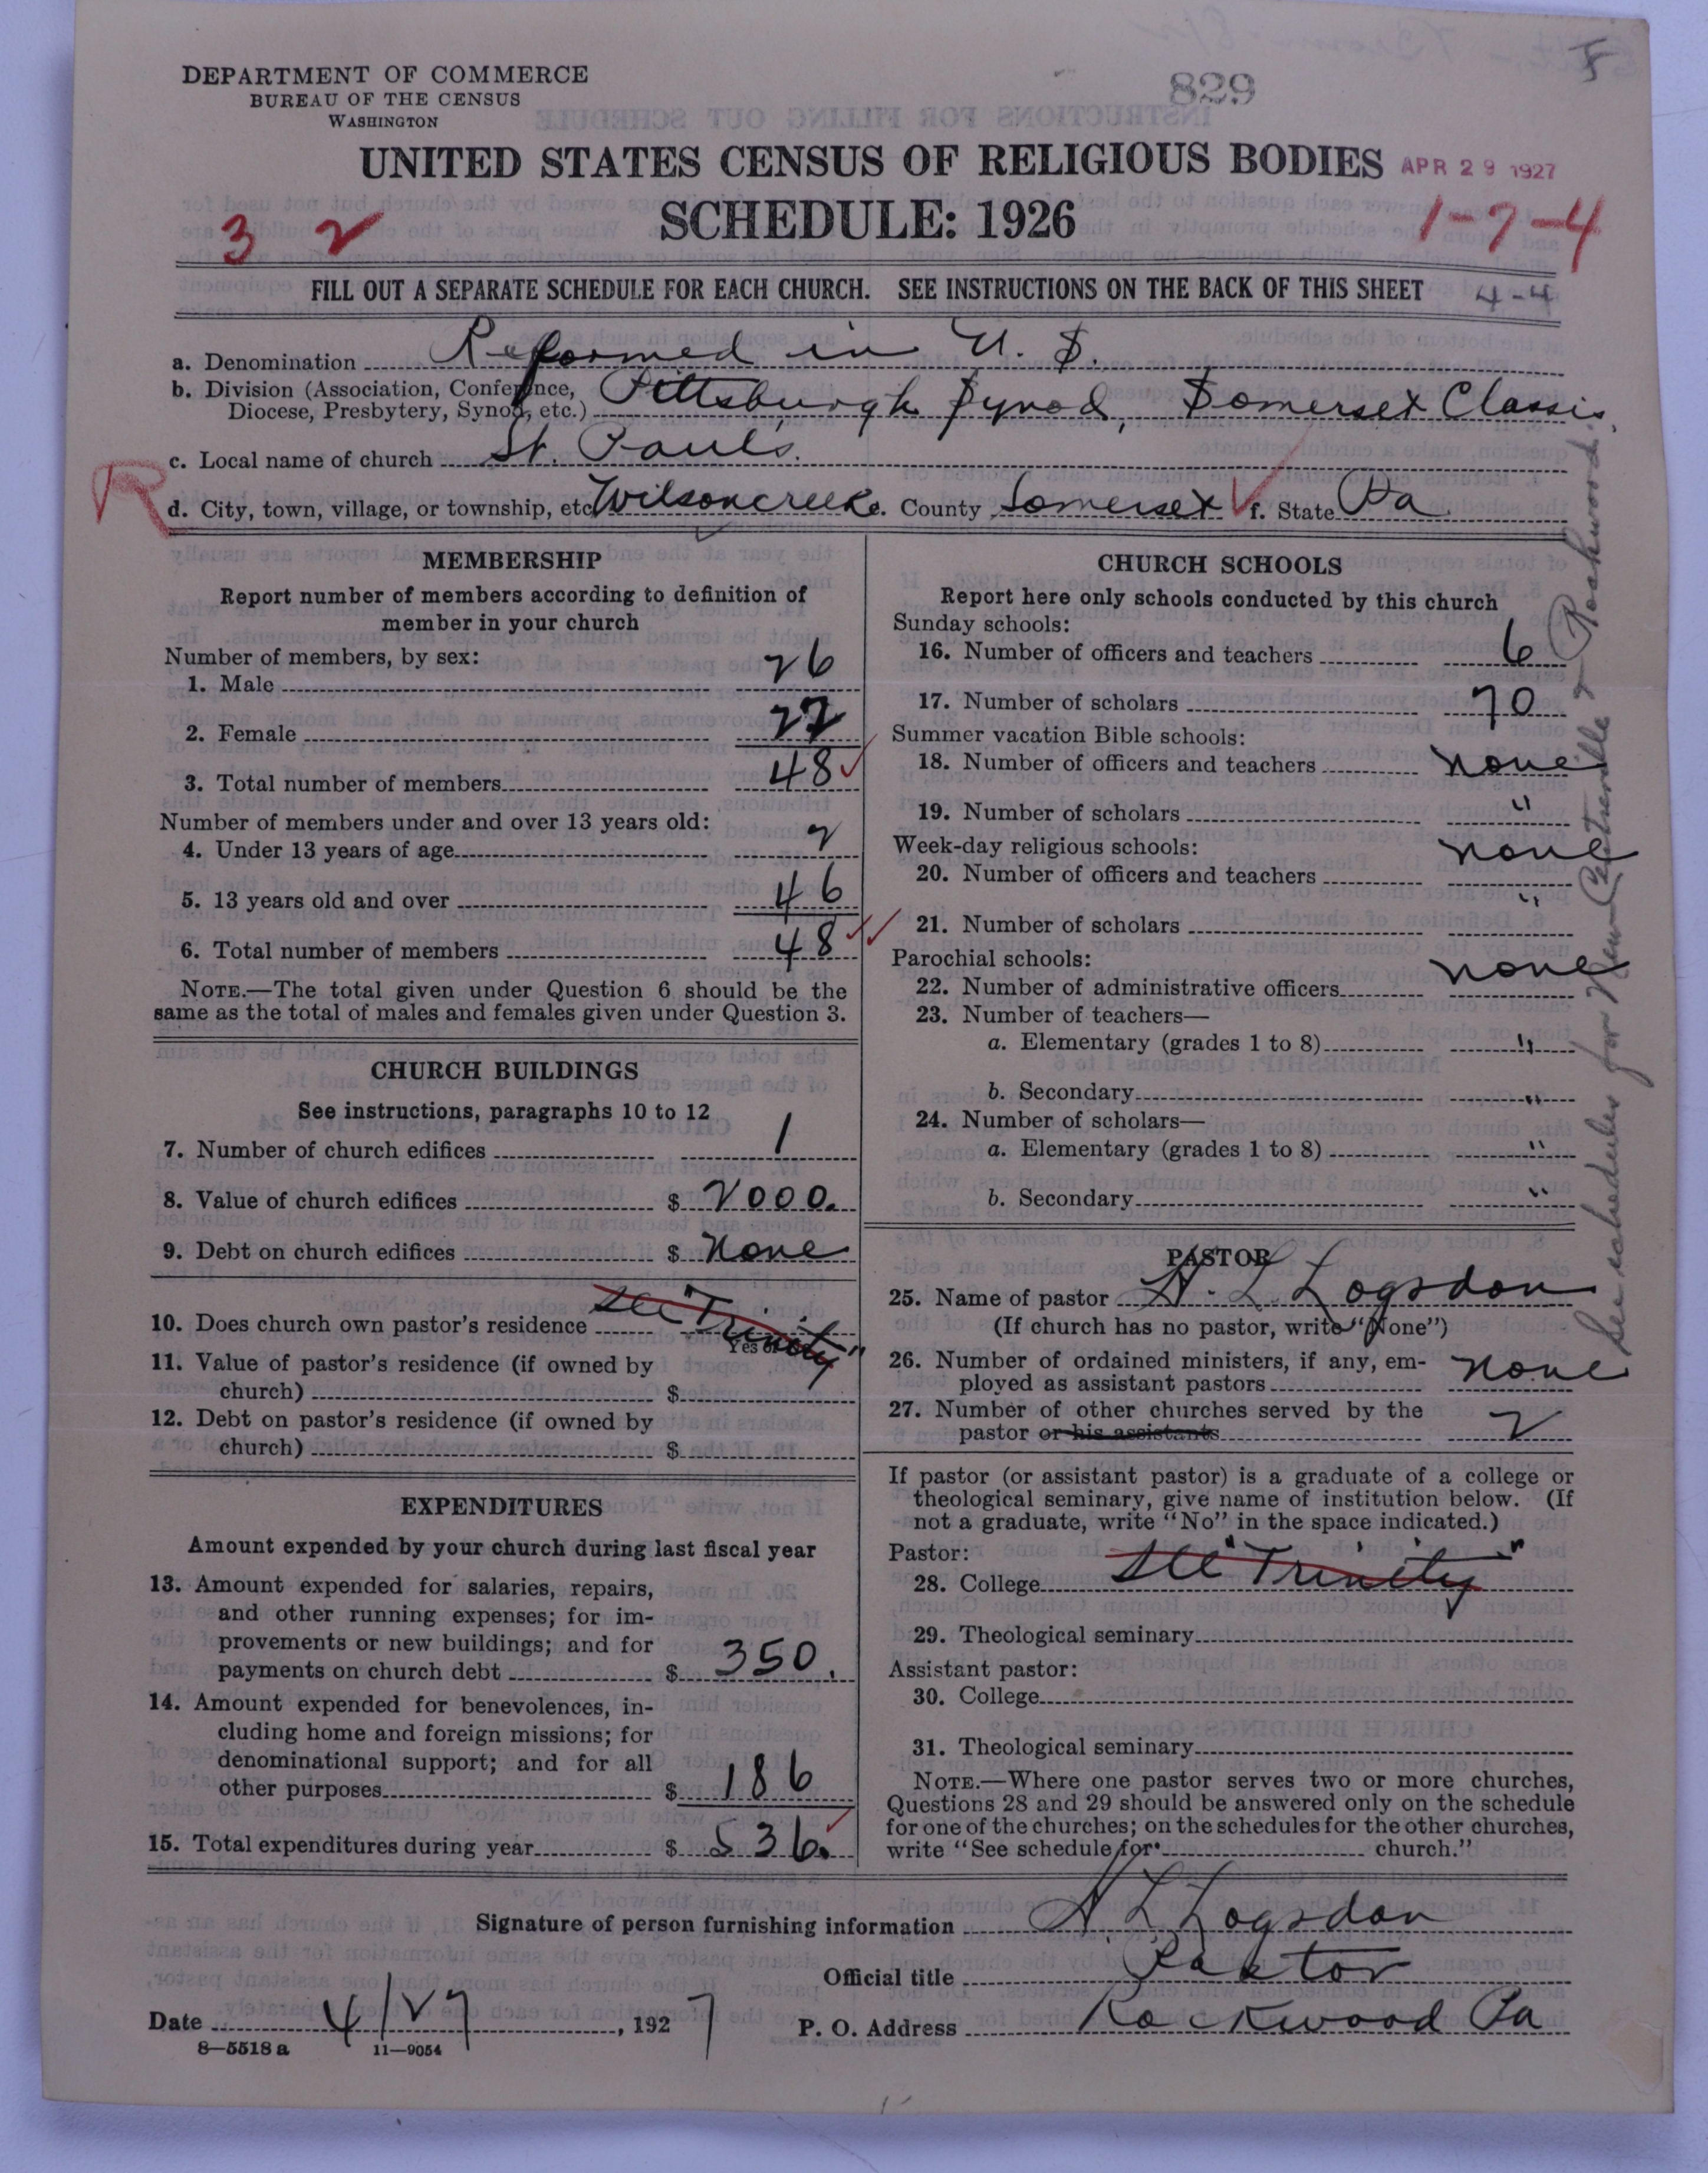 DEPARTMENT OF COMMERCE
BUREAU OF THE CENSUS
WASHINGTON
829
UNITED STATES CENSUS OF RELIGIOUS BODIES APR 29 1927
SCHEDULE: 1926
3 2
1-7-4
FILL OUT A SEPARATE SCHEDULE FOR EACH CHURCH. SEE INSTRUCTIONS ON THE BACK OF THIS SHEET
4-4
a. Denomination Reformed in U. S.
b. Division (Association, Conference, Diocese, Presbytery, Synod, etc.) Pittsburgh Synod, Somerset Classis,
c. Local name of church St. Paul's.
R
d. City, town, village, or township, etc. Wilsoncreek e. County Somerset f. State Pa.
MEMBERSHIP
Report number of members according to definition of
member in your church
Number of members, by sex:
1. Male 26
2. Female 22
3. Total number of members 48
Number of members under and over 13 years old:
4. Under 13 years of age 2
5. 13 years old and over 46
6. Total number of members 48
NOTE.—The total given under Question 6 should be the
same as the total of males and females given under Question 3.
CHURCH BUILDINGS
See instructions, paragraphs 10 to 12
7. Number of church edifices 1
8. Value of church edifices $ 2000.
9. Debt on church edifices $ None
10. Does church own pastor's residence See "Trinity"
11. Value of pastor's residence (if owned by
church) $
12. Debt on pastor's residence (if owned by
church) $
EXPENDITURES
Amount expended by your church during last fiscal year
13. Amount expended for salaries, repairs,
and other running expenses; for im-
provements or new buildings; and for
payments on church debt $ 350.
14. Amount expended for benevolences, in-
cluding home and foreign missions; for
denominational support; and for all
other purposes $ 186
15. Total expenditures during year $ 536.
CHURCH SCHOOLS
Report here only schools conducted by this church
Sunday schools:
16. Number of officers and teachers 6
17. Number of scholars 70
Summer vacation Bible schools:
18. Number of officers and teachers none
19. Number of scholars "
Week-day religious schools:
20. Number of officers and teachers none
21. Number of scholars "
Parochial schools:
22. Number of administrative officers none
23. Number of teachers—
a. Elementary (grades 1 to 8) "
b. Secondary "
24. Number of scholars—
a. Elementary (grades 1 to 8) "
b. Secondary "
PASTOR
25. Name of pastor A. L. Logsdon
(If church has no pastor, write "None")
26. Number of ordained ministers, if any, em-
ployed as assistant pastors none
27. Number of other churches served by the
pastor or his assistants 2
If pastor (or assistant pastor) is a graduate of a college or
theological seminary, give name of institution below. (If
not a graduate, write "No" in the space indicated.)
Pastor:
28. College See "Trinity"
29. Theological seminary
Assistant pastor:
30. College
31. Theological seminary
NOTE.—Where one pastor serves two or more churches,
Questions 28 and 29 should be answered only on the schedule
for one of the churches; on the schedules for the other churches,
write "See schedule for church."
See schedules for New Centerville & Rockwood.
Signature of person furnishing information A. L. Logsdon
Official title Pastor
Date 4/27, 1927
P. O. Address Rockwood Pa
8—5518 a 11—9054